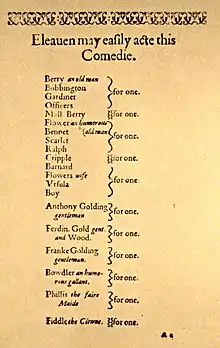 Eleauen may easily acte this
Comedie.
Berry an old man
Bobbington
Gardiner
Officers
for one.
Mall Berry for one.
Flower an humorone
Bennet (old man
Scarlet
Ralph
for one.
Cripple for one.
Barnard
Flowers wife
Vrsula
Boy
for one.
Anthony Golding
gentleman
for one.
Ferdin. Gold gent.
and Wood.
for one.
Franke Golding
gentleman.
for one.
Bowdler an humo-
rous gallant.
for one.
Phillis the faire
Maide
for one.
Fiddle the Clowne. for one.